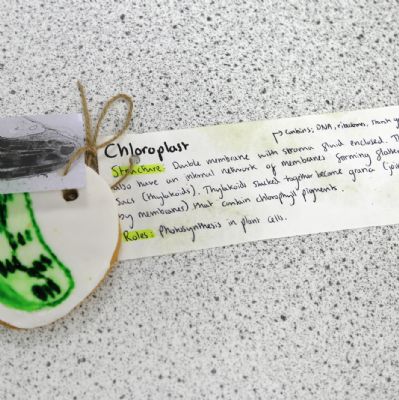 Chloroplast
→ contains: DNA, ribosomes, starch
Structure: Double membrane with stroma fluid enclosed. Th
also have an internal network of membranes forming flatten
sacs (thylakoids). Thylakoids stacked together become grana (joi
by membranes) that contain chlorophyll pigment.
Roles: Photosynthesis in plant cells.